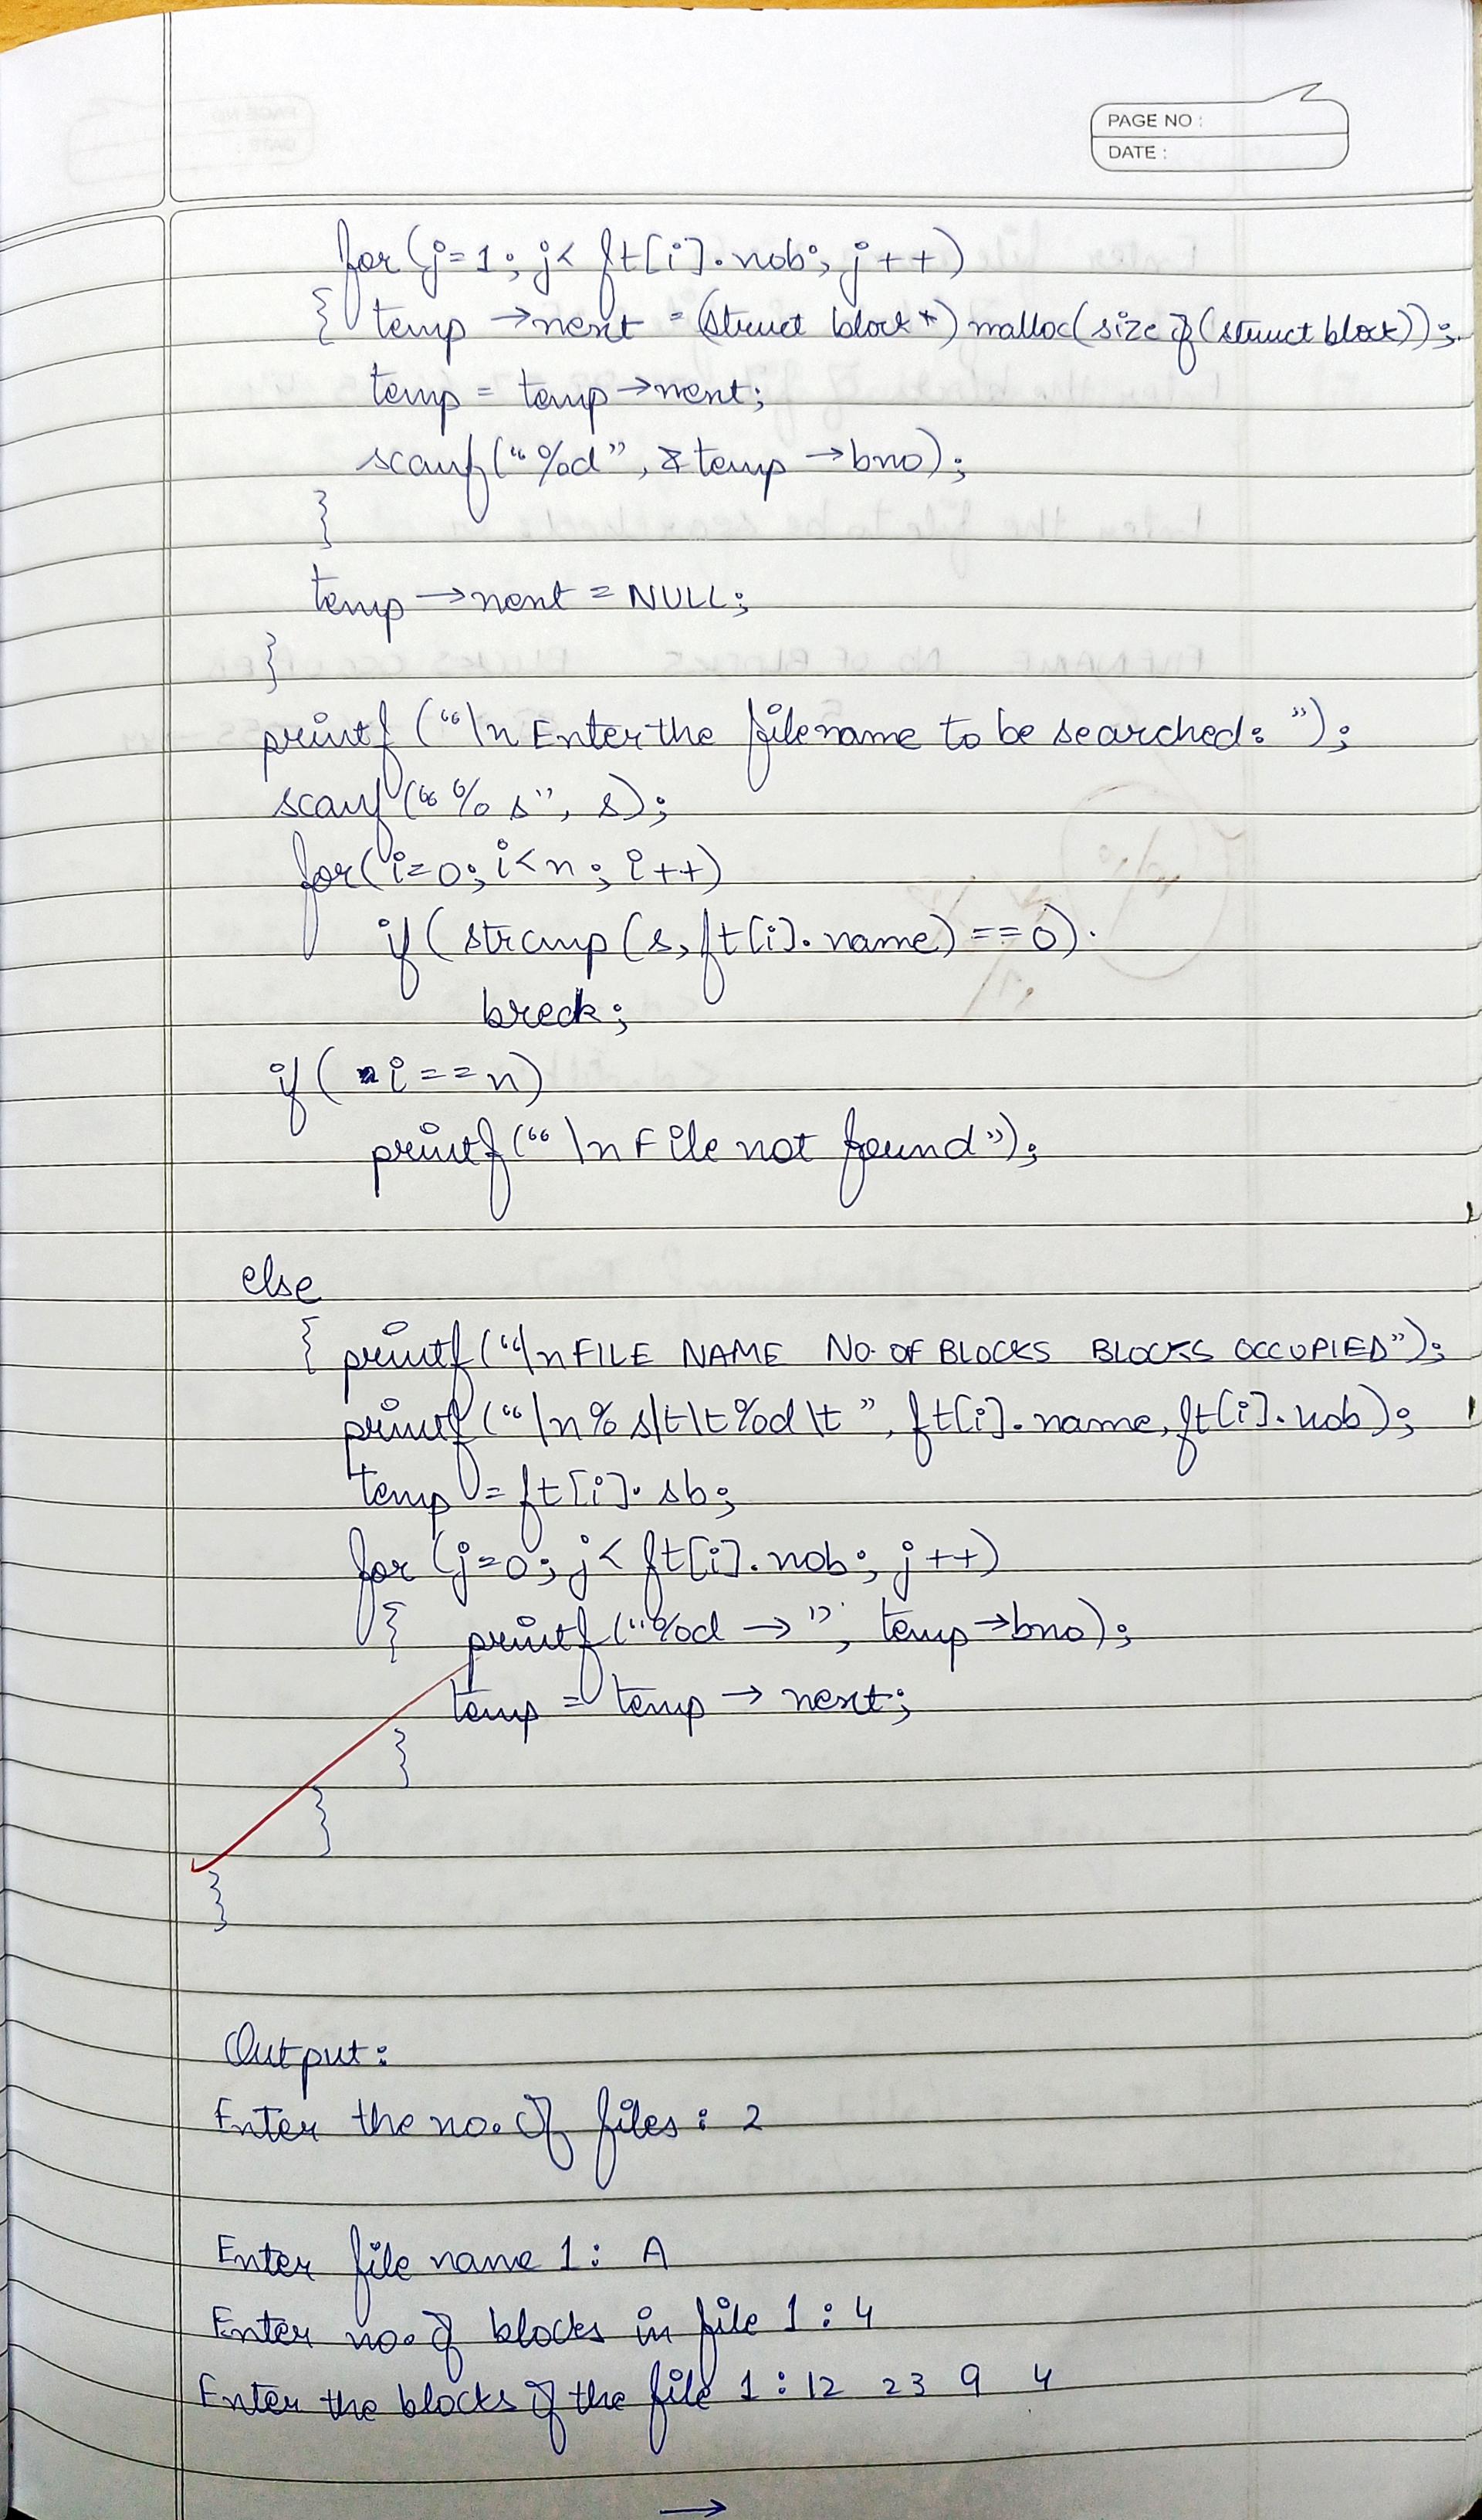 PAGE NO :
DATE :
for (j=1; j< ft[i].nob; j++)
{ temp →next = (struct block*) malloc(size of (struct block));
temp = temp →next;
scanf("%d", &temp →bno);
}
temp →next = NULL;
}
printf ("\n Enter the filename to be searched: ");
scanf ("%s", s);
for(i=0; i<n; i++)
if( strcmp (s, ft[i].name) ==0)
break;
if( i==n)
printf("\n File not found");
else
{ printf("\n FILE NAME NO. OF BLOCKS BLOCKS OCCUPIED");
printf("\n%s\t\t%d\t", ft[i].name, ft[i].nob);
temp = ft[i].sb;
for (j=0; j< ft[i].nob; j++)
{ printf("%d → ", temp→bno);
temp = temp → next;
}
}
}
Output:
Enter the no. of files: 2
Enter file name 1: A
Enter no. of blocks in file 1 : 4
Enter the blocks of the file 1 : 12 23 9 4
→